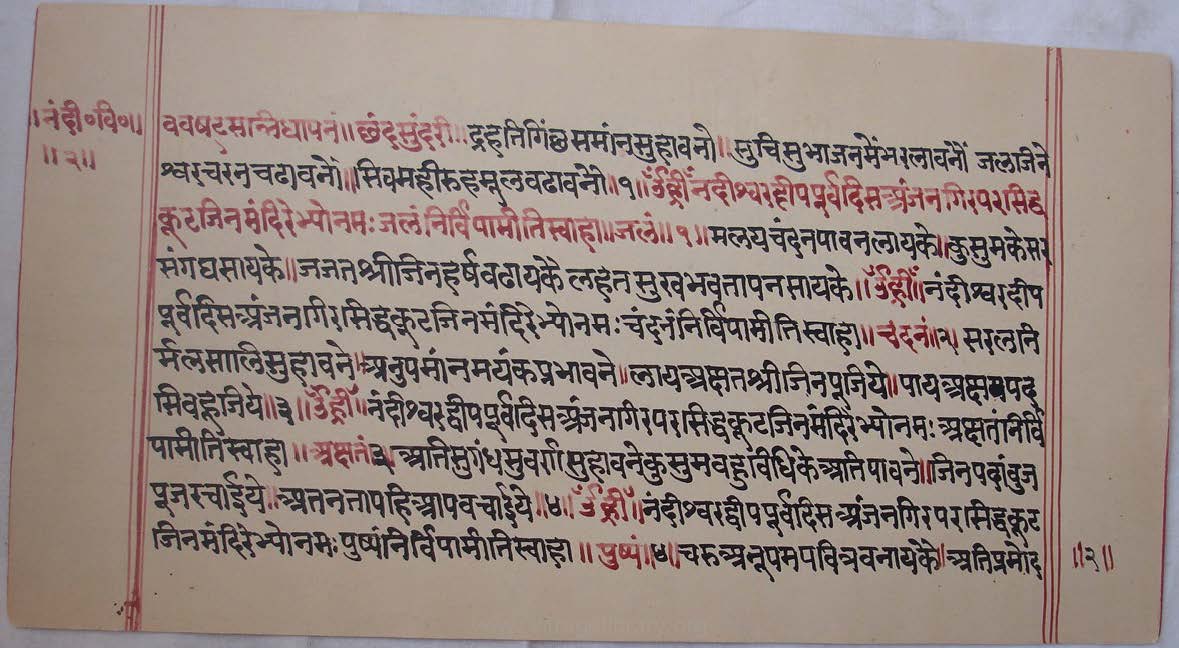 ॥नंदी॰वि॰॥
॥२॥
ववषट्सान्निधापनं॥छंदसुंदरी॥द्रहतिगिंछसमांनसुहावनो॥सुचिसुभाजनमेंभरलावनों जलजिने
श्वरचरनचढावनों॥सिवमहीरुहमूलवढावनों॥१॥ॐह्रीँनदीश्वरद्वीपपूर्वदिसअंजनगिरपरसिद्ध
कूटजिनमंदिरेभ्योनमःजलंनिर्विपामीतिस्वाहा॥जलं॥१॥मलयचंदनपावनलायके॥कुसुमकेसर
संगघसायके॥जजतश्रीजिनहर्षवढायकें लहेनसुखभवतापनसायके॥ॐह्रीँ॥नंदीश्वरदीप
पूर्वदिसअंजनगीरसिद्धकूटजिनमंदिरेभ्योनमःचंदनंनिर्विपामीतिस्वाहा॥चंदनं॥२॥सरलनि
र्मलसालिसुहावने॥अनुपमांनमयंकप्रभावने॥लायअक्षतश्रीजिनपूजिये॥पायअक्षयपद
सिवहूजिये॥३॥ॐह्रीँ॥नंदीश्वरद्वीपपूर्वदिसअंजनगिरपरसिद्धकूटजिनमंदिरेभ्योनमःअक्षतांनिर्वि
पामीतिस्वाहा॥अक्षतं३॥अतिसुगंधसुवर्णसुहावनेकुसुमवहुविधिकेअतिपावने॥जिनपदांवुज
पूजरचाईये॥अतनतापहिआपवचाईये॥४॥ॐह्रीँ॥नंदीश्वरद्वीपपूर्वदिसअंजनगिरपरसिद्धकूट
जिनमंदिरेभ्योनमःपुष्पांनिर्विपामीतिस्वाहा॥पुष्पं॥४॥चरुअनूपमपवित्रवनायकें॥अतिप्रमोद
॥२॥